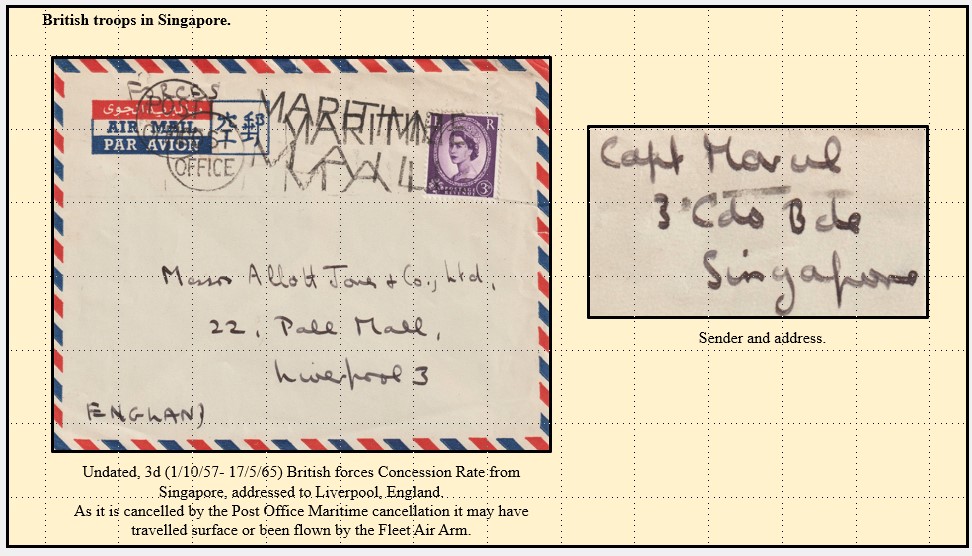 British troops in Singapore.
FORCES
AIR MAIL
PAR AVION
POST
OFFICE
MARITIME
MAIL
R
3D
Messrs Allott Jones & Co., Ltd,
22, Pall Mall,
Liverpool 3
ENGLAND
Capt
3 Cdo Bde
Singapore
Sender and address.
Undated, 3d (1/10/57- 17/5/65) British forces Concession Rate from
Singapore, addressed to Liverpool, England.
As it is cancelled by the Post Office Maritime cancellation it may have
travelled surface or been flown by the Fleet Air Arm.